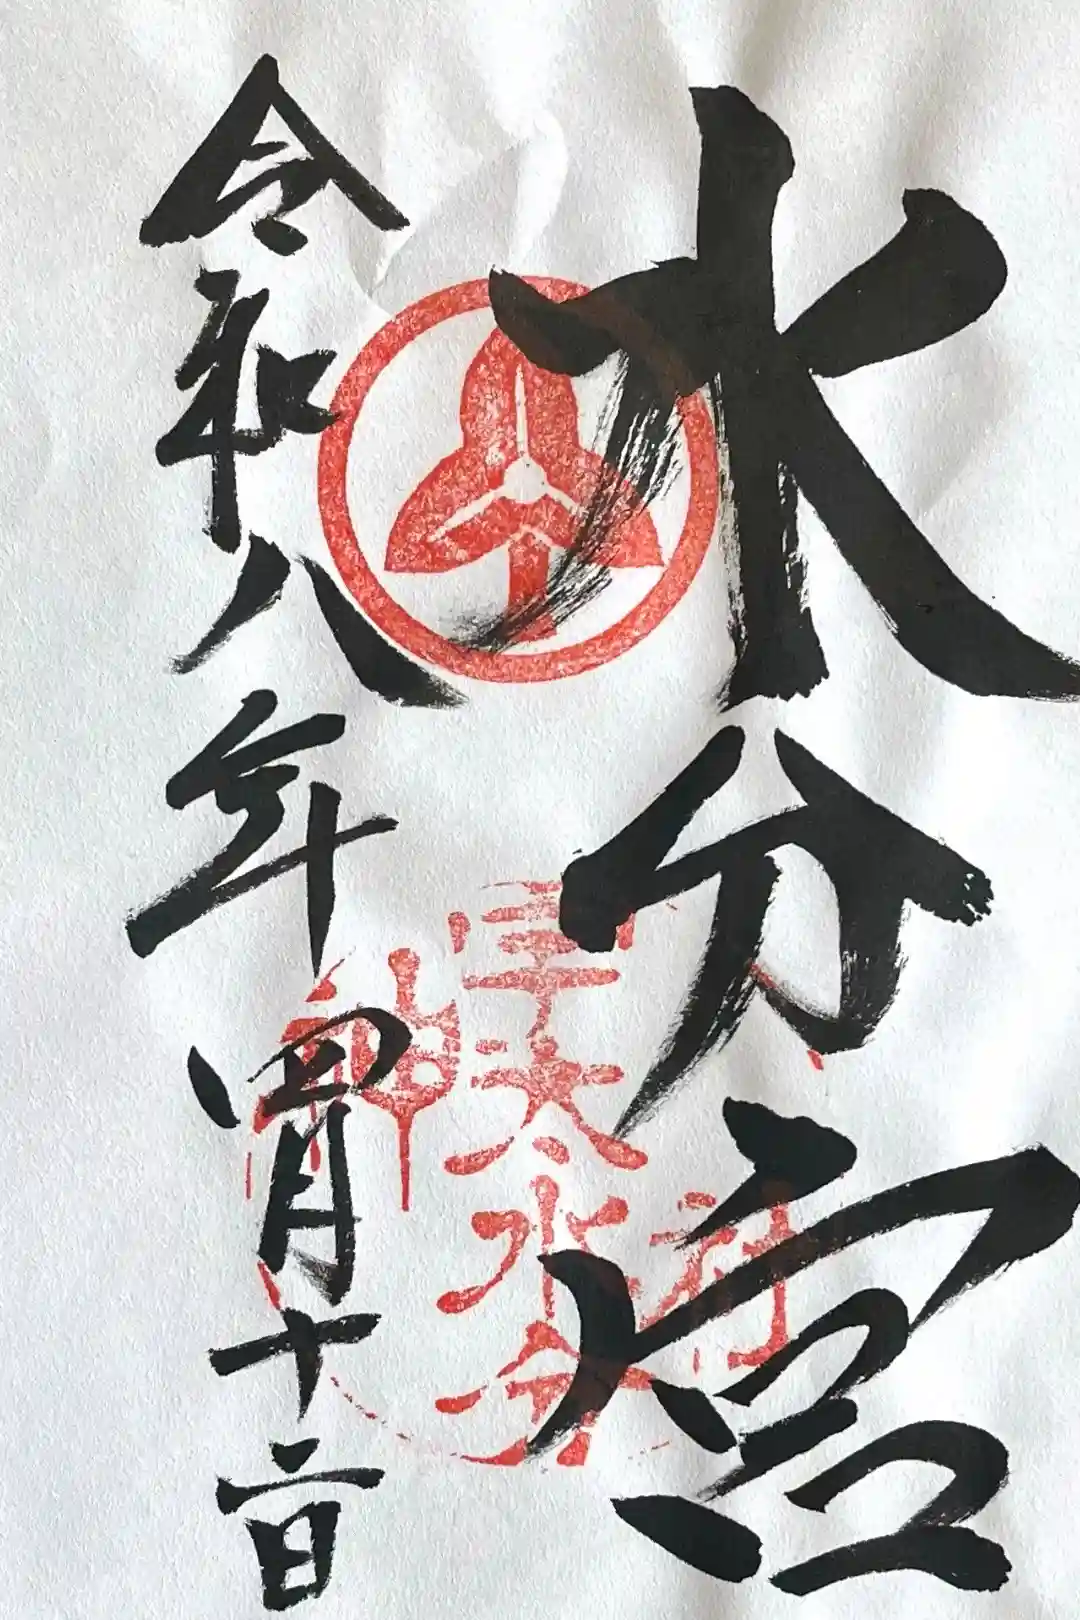 水分宮
宇太水分
神社
令和八年四月十二日